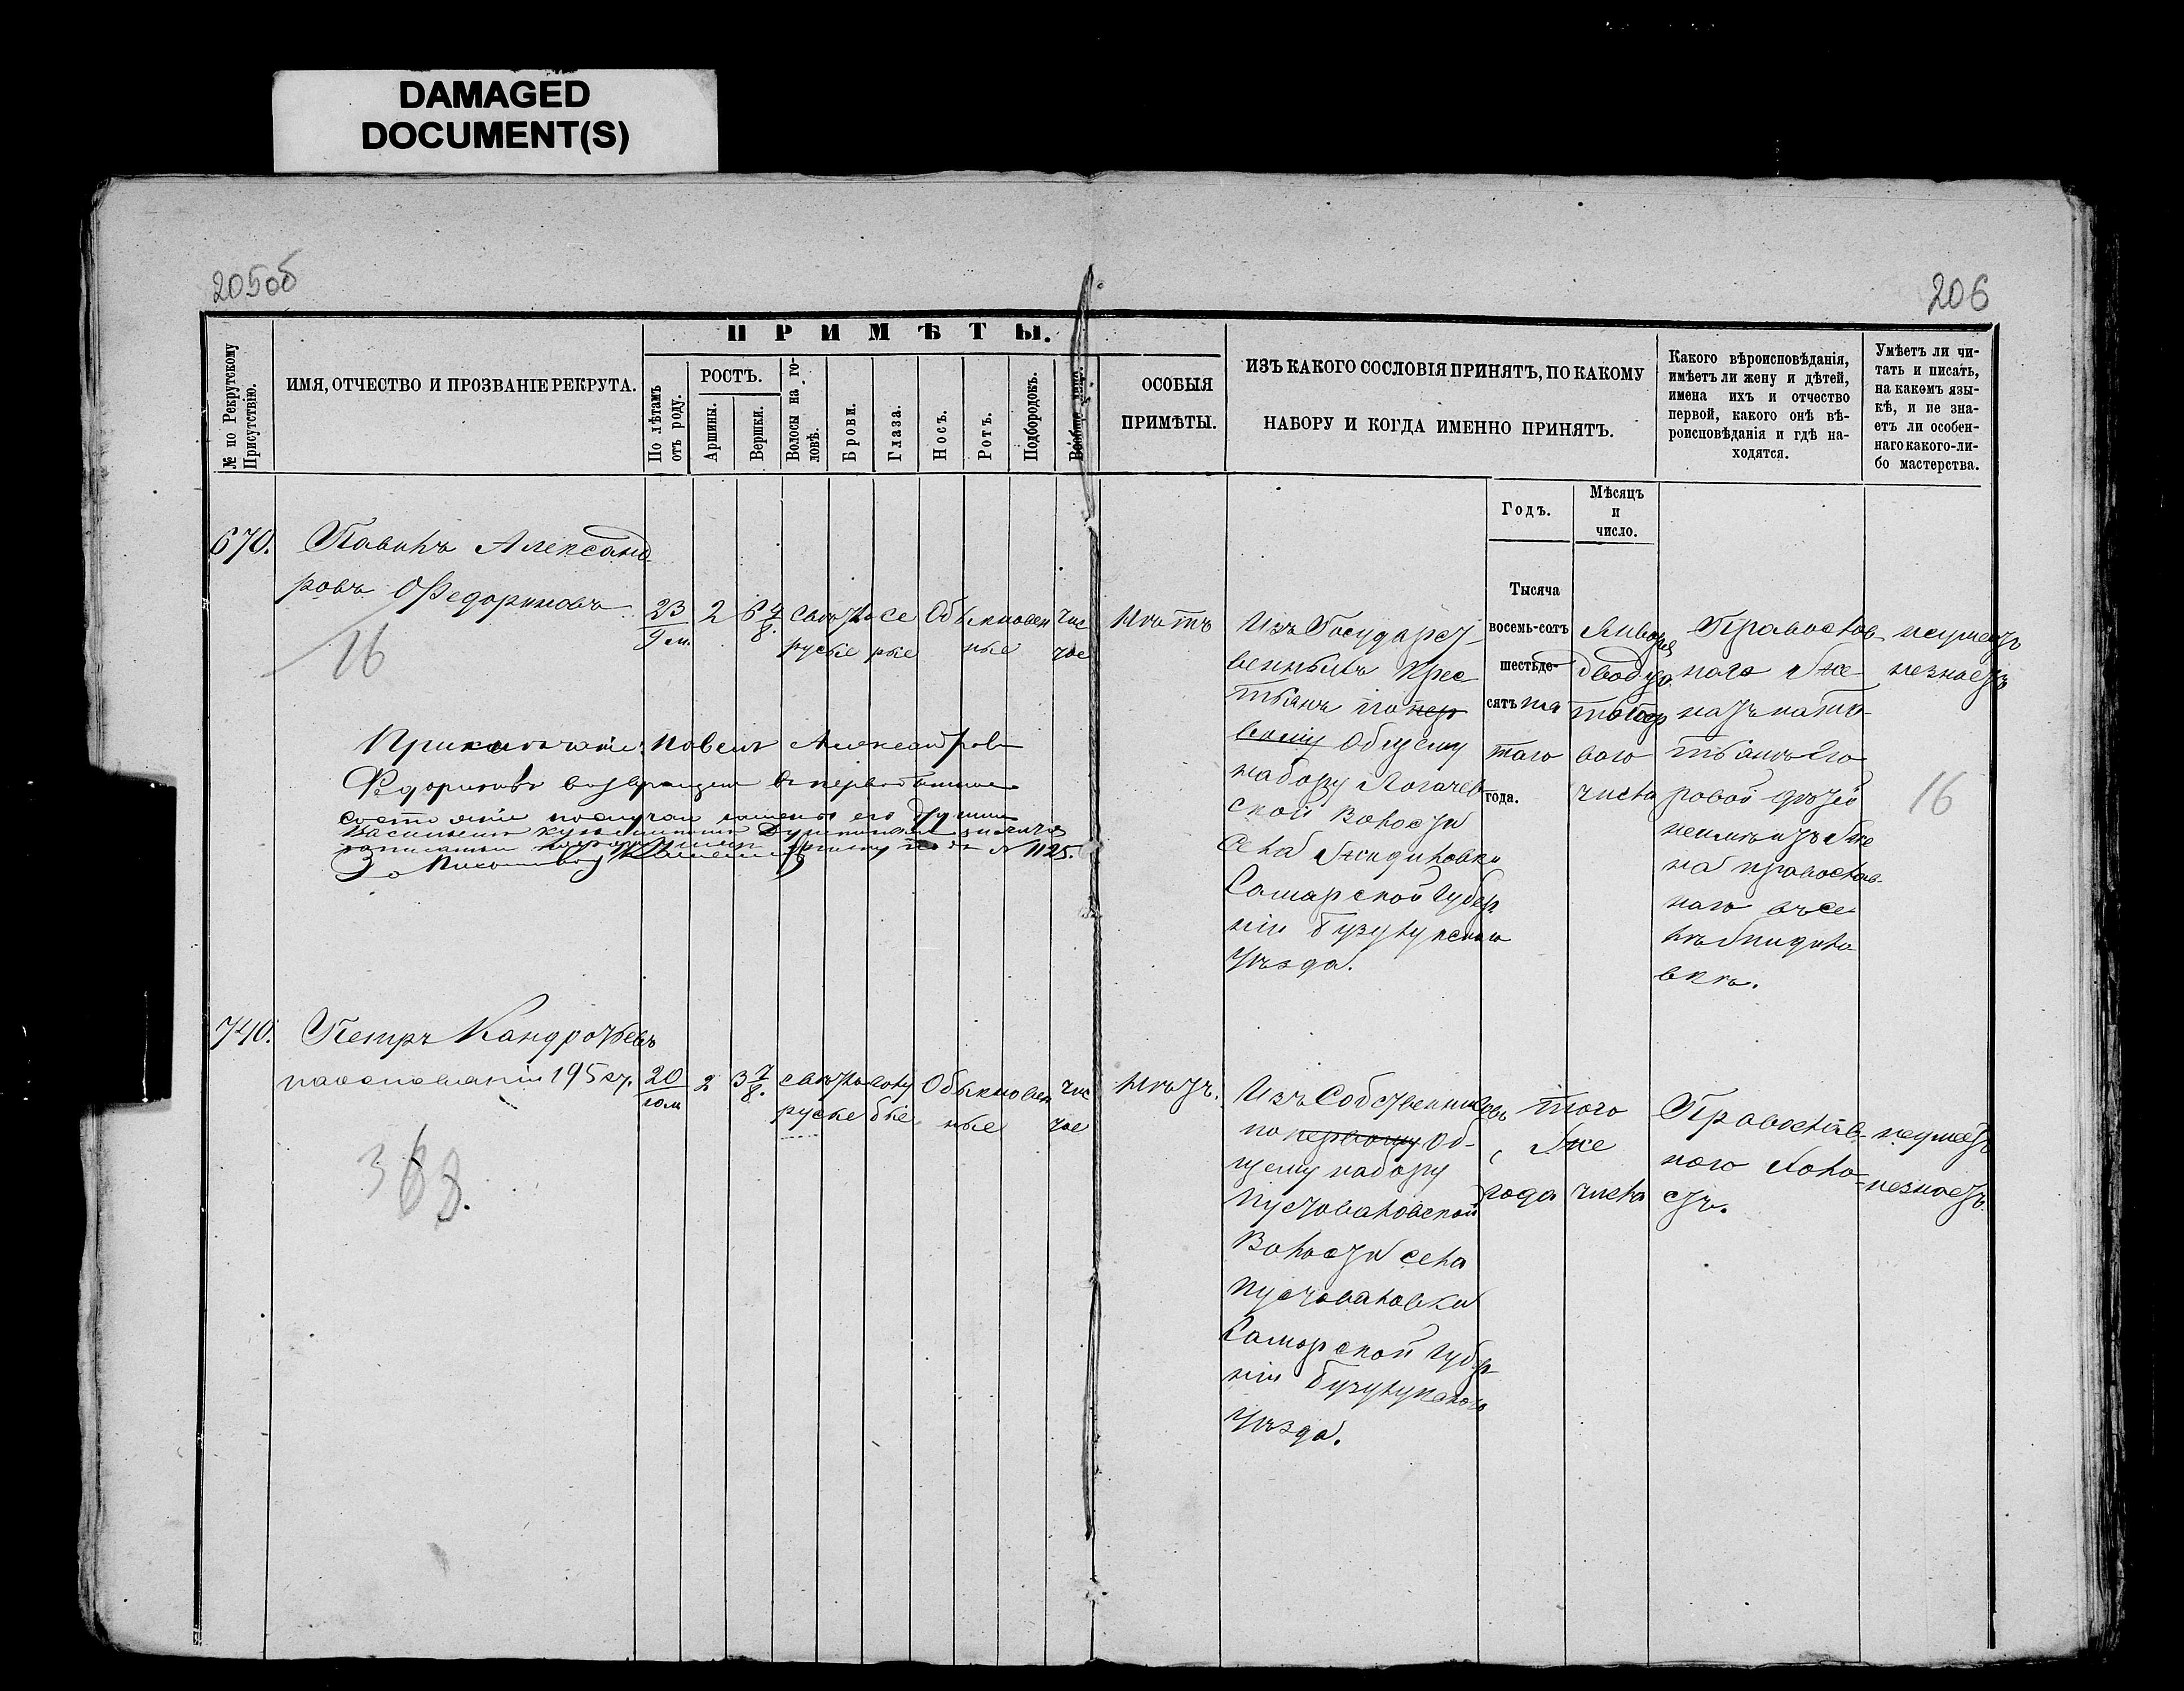 DAMAGED
DOCUMENT(S)
205об
206
№ по Рекрутскому
Присутствію.
ИМЯ, ОТЧЕСТВО И ПРОЗВАНІЕ РЕКРУТА.
ПРИМѢТЫ.
По лѣтамъ
отъ роду.
РОСТЪ.
Аршины.
Вершки.
Волосы на го-
ловѣ.
Брови.
Глаза.
Носъ.
Ротъ.
Подбородокъ.
Вообще лицо.
ОСОБЫЯ
ПРИМѢТЫ.
ИЗЪ КАКОГО СОСЛОВІЯ ПРИНЯТЪ, ПО КАКОМУ
НАБОРУ И КОГДА ИМЕННО ПРИНЯТЪ.
Какого вѣроисповѣданія,
имѣетъ ли жену и дѣтей,
имена ихъ и отчество
первой, какого онѣ вѣ-
роисповѣданія и гдѣ на-
ходятся.
Умѣетъ ли чи-
тать и писать,
на какомъ язы-
кѣ, и не зна-
етъ ли особен-
наго какого-ли-
бо мастерства.
Годъ.
Мѣсяцъ
и
число.
670.
Павилъ Александ
ровъ Федориновъ
16
23
9 м.
2
6 4/8.
свѣтло
русые
се
рые
Обыкновен
ные
чис
тое
Нѣтъ
Изъ Государст
венныхъ Крес
тьянъ по пер
вому Общему
набору Логачев
ской Волости
Села
Самарской Губер
ніи Бузулукскаго
Уѣзда.
Тысяча
восемь-сотъ
шестьде-
сятъ пя
таго
года.
Января
двадца
того пер
ваго
числа
Православ
наго Же
натъ на
Его
ровой дѣтей
неимѣетъ Же
на православ-
наго въ се
лѣ
вкѣ.
неумеетъ
незнаетъ
16
Примѣчаніе: Павелъ Александровъ
Федориновъ возвращенъ въ первобытное
состояніе по случаю замены его
№ 1125.
740.
Петръ Кандратьевъ
195 ст.
368.
20
10 м
2
3 7/8.
свѣтло
русые
голу
бые
Обыкновен
ные
чис
тое
Нѣтъ.
Изъ Собственниковъ
по первому Об-
щему набору
Пустоваловской
Волости села
Пустоваловки
Самарской Губер
ніи Бузулукскаго
Уѣзда.
того
же
года
числа
Православ-
наго Холо-
стъ.
неумеетъ
незнаетъ.